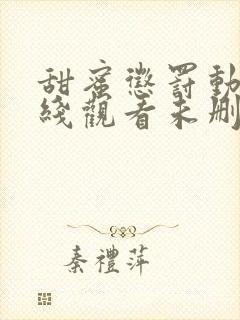 甜蜜懲罰動
綫觀看未刪
秦禮萍